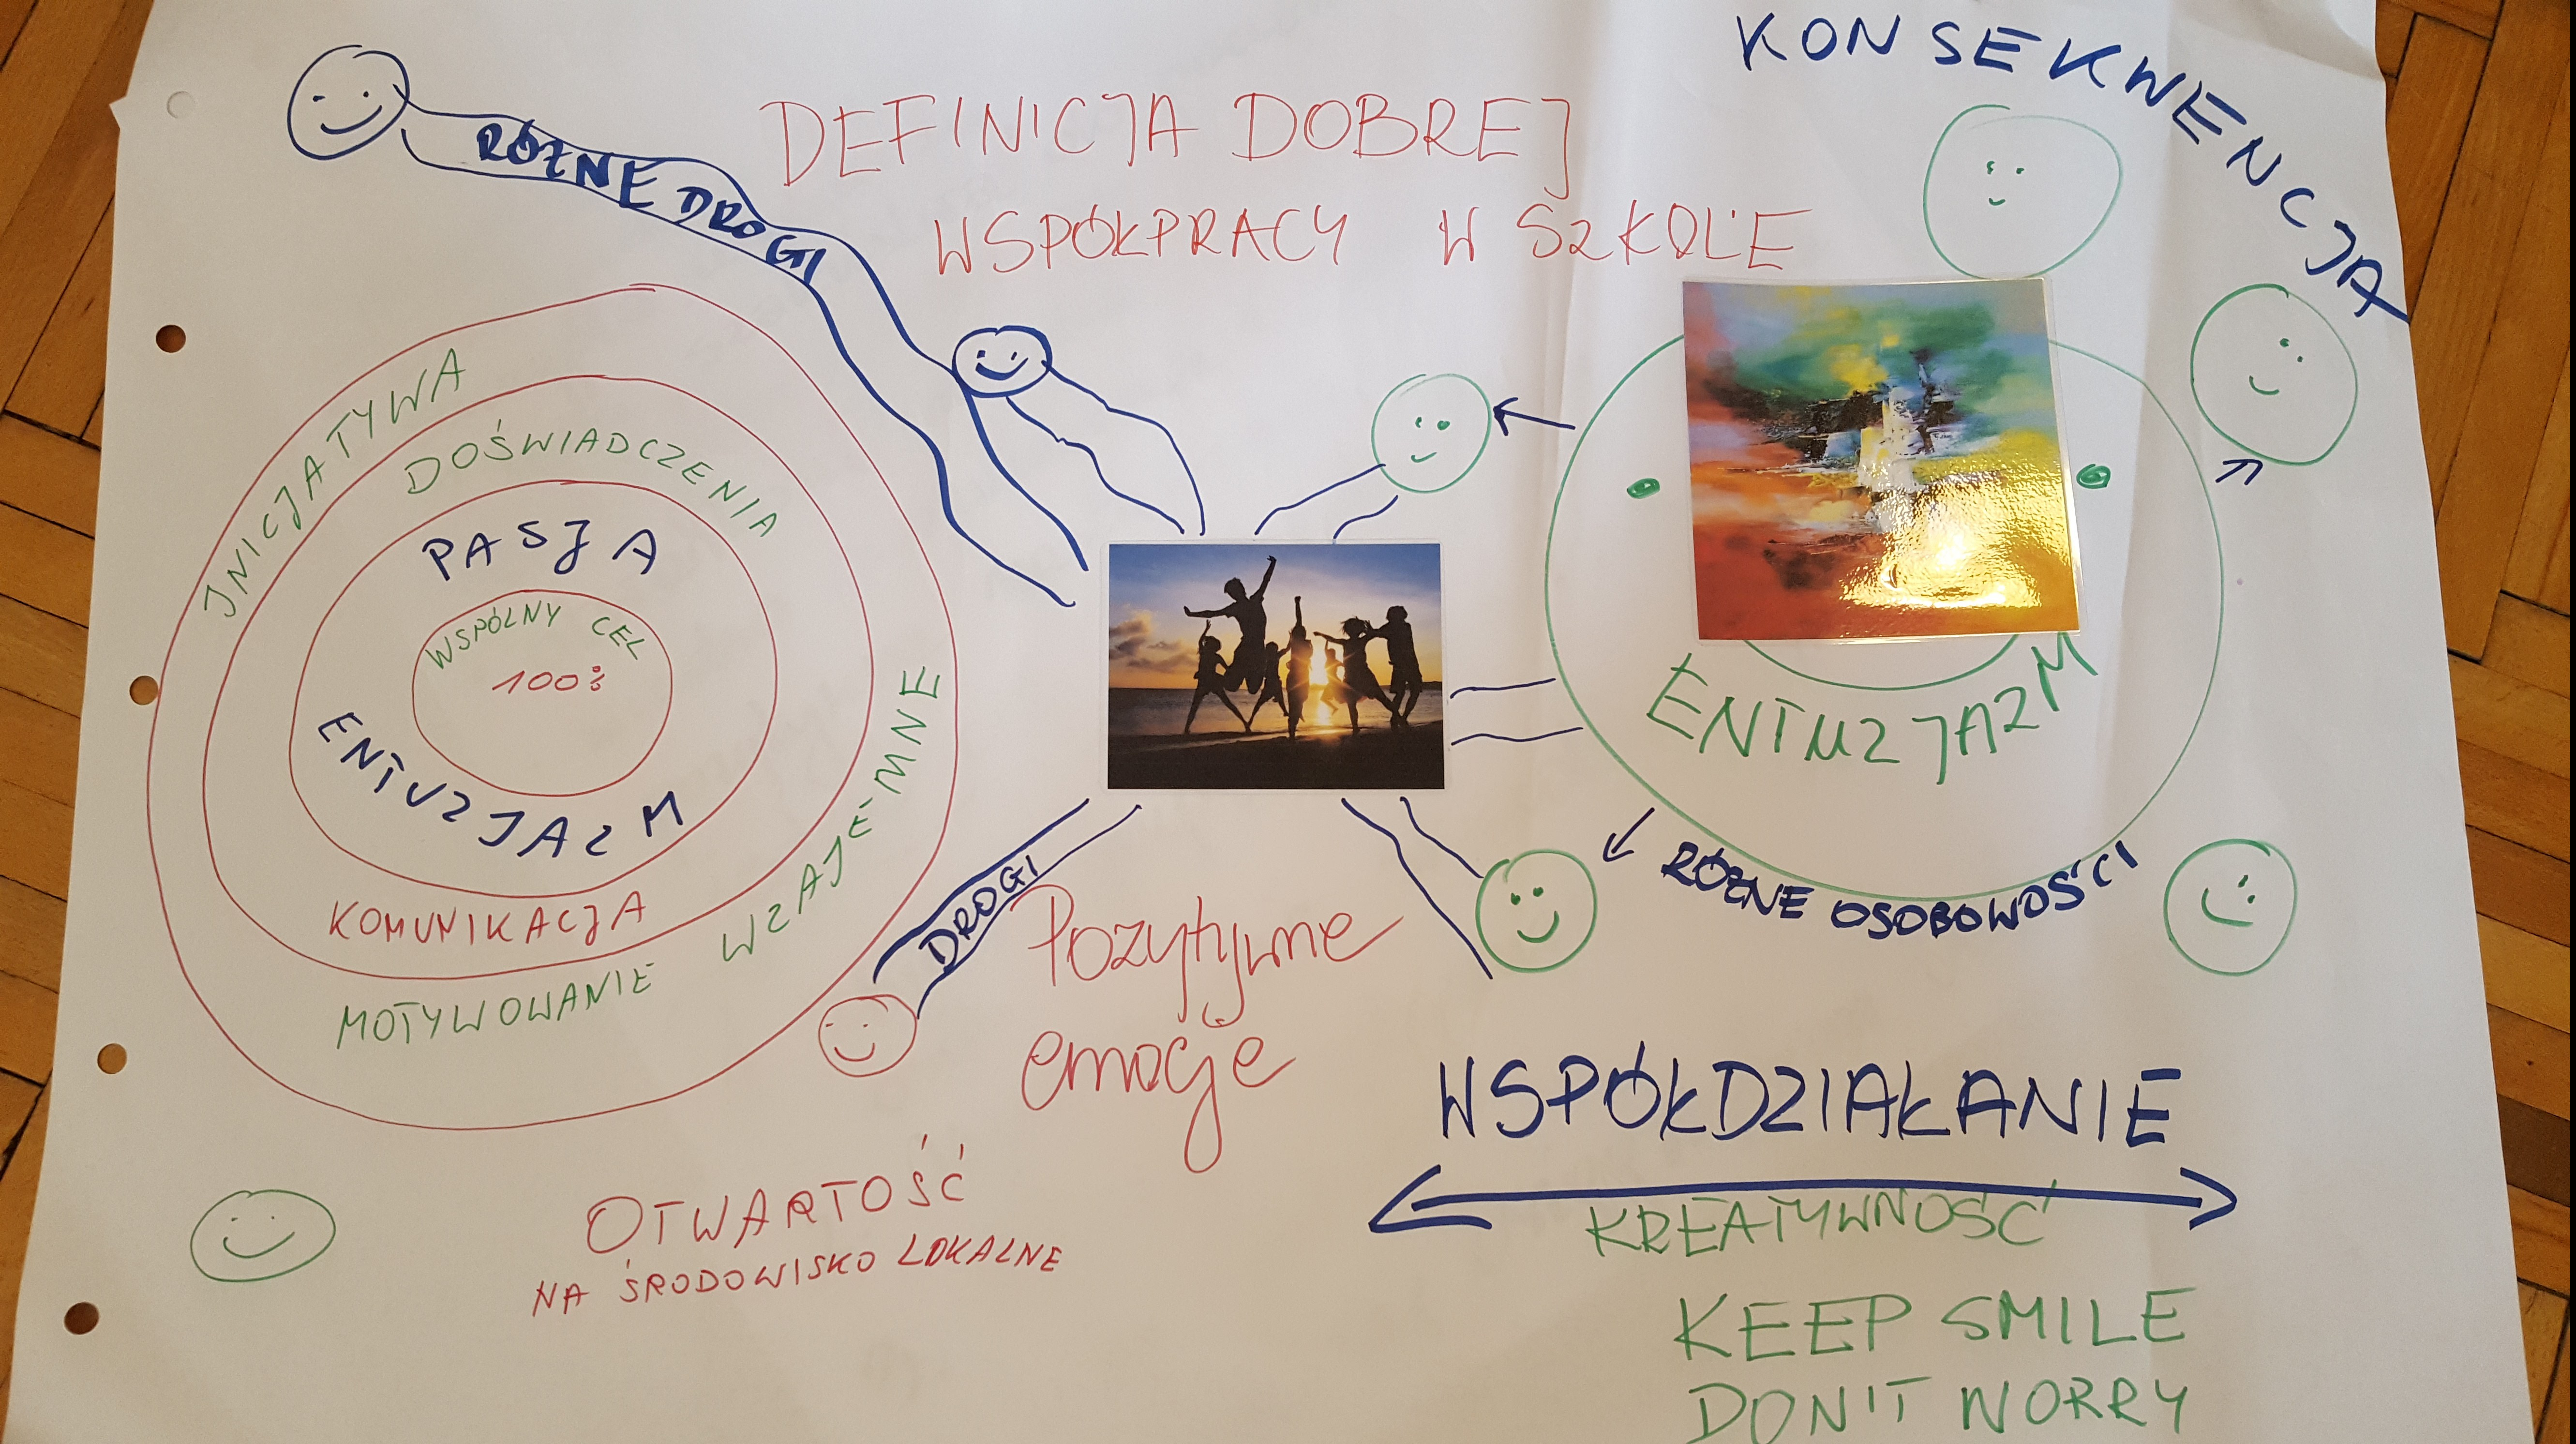 KONSEKWENCJA
DEFINICJA DOBREJ
WSPÓŁPRACY W SZKOLE
RÓŻNE DROGI
INICJATYWA
DOŚWIADCZENIA
PASJA
WSPÓLNY CEL
100%
ENTUZJAZM
KOMUNIKACJA
MOTYWOWANIE WZAJEMNE
ENTUZJAZM
RÓŻNE OSOBOWOŚCI
DROGI
Pozytywne
emocje
WSPÓŁDZIAŁANIE
KREATYWNOŚĆ
OTWARTOŚĆ
NA ŚRODOWISKO LOKALNE
KEEP SMILE
DON'T WORRY